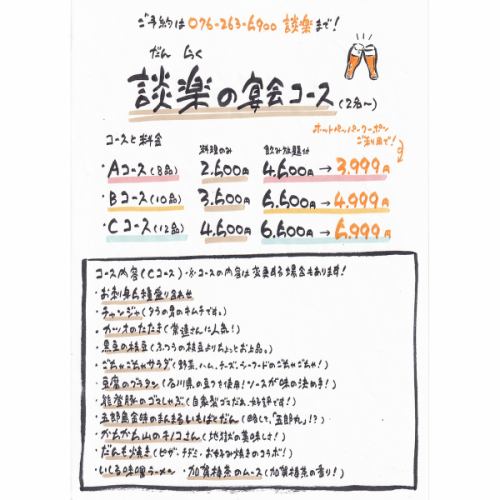 ご予約は 076-263-5900 談楽まで!
だん らく
談楽の宴会コース(2名〜)
ホットペッパークーポン
ご利用で!
コースと料金 料理のみ 飲み放題付
・Aコース(8品) 2.500円 4.500円→3.999円
・Bコース(10品) 3.500円 5.500円→4.999円
・Cコース(12品) 4.500円 6.500円→5.999円
コース内容(Cコース)・※コースの内容は変更する場合もあります!
・お刺身5種盛り合わせ
・チャンジャ(タラの身のキムチです。)
・カツオのたたき(常連さんに人気!)
・黒豆の枝豆(ふつうの枝豆よりちょっとお上品。)
・ごちゃごちゃサラダ(野菜、ハム、チーズ、シーフードのごちゃごちゃ!)
・豆腐のグラタン(石川県の豆フを使用!ソースが味の決め手!)
・能登豚のゴマしゃぶ(自家製ゴマだれ、好評です!)
・五郎島金時のまんまるいもばとだん(略して、「五郎丸」!?)
・かちかち山のキノコさん(地獄の美味しさ!)
・だんも焼き(ピザ、チヂミ、お好み焼きのコラボ!)
・いしる味噌ラーメン ・加賀棒茶のムース(加賀棒茶の香り!)